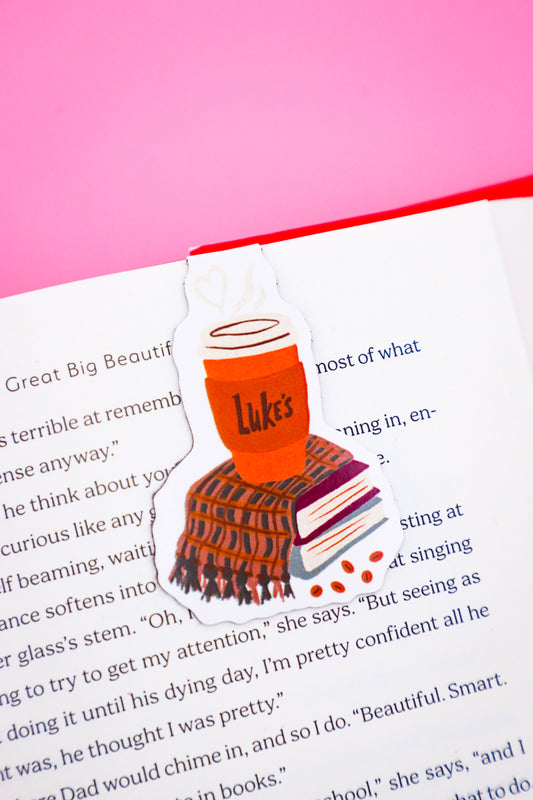 Great Big Beautif
most of what
s terrible at rememb
ning in, en-
ense anyway.”
e.
he think about you
curious like any g
sting at
lf beaming, waiti
at singing
ance softens into
“But seeing as
er glass’s stem. “Oh, I
ng to try to get my attention,” she says.
doing it until his dying day, I’m pretty confident all he
nt was, he thought I was pretty.”
ere Dad would chime in, and so I do. “Beautiful. Smart.
e in books.”
school,” she says, “and I
hat to do
LUKE'S